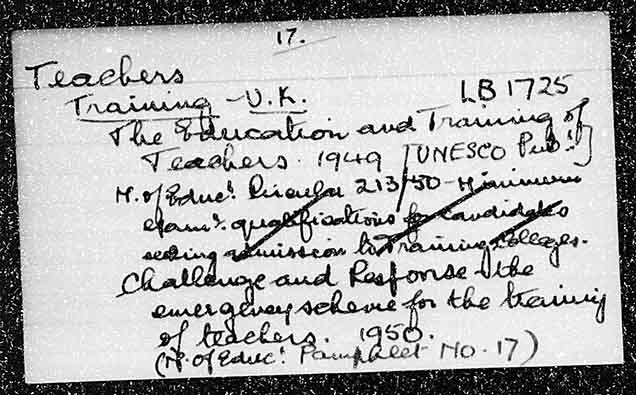 17.
Teachers
Training - U.K. LB 1725
The Education and Training of
Teachers. 1949 [UNESCO Pub:]
M. of Educ: Circular 213/50 - Minimum
exam: qualifications for candidates
seeking admission to Training Colleges.
Challenge and Response - the
emergency scheme for the training
of teachers. 1950.
(M. of Educ: Pamphlet No. 17)